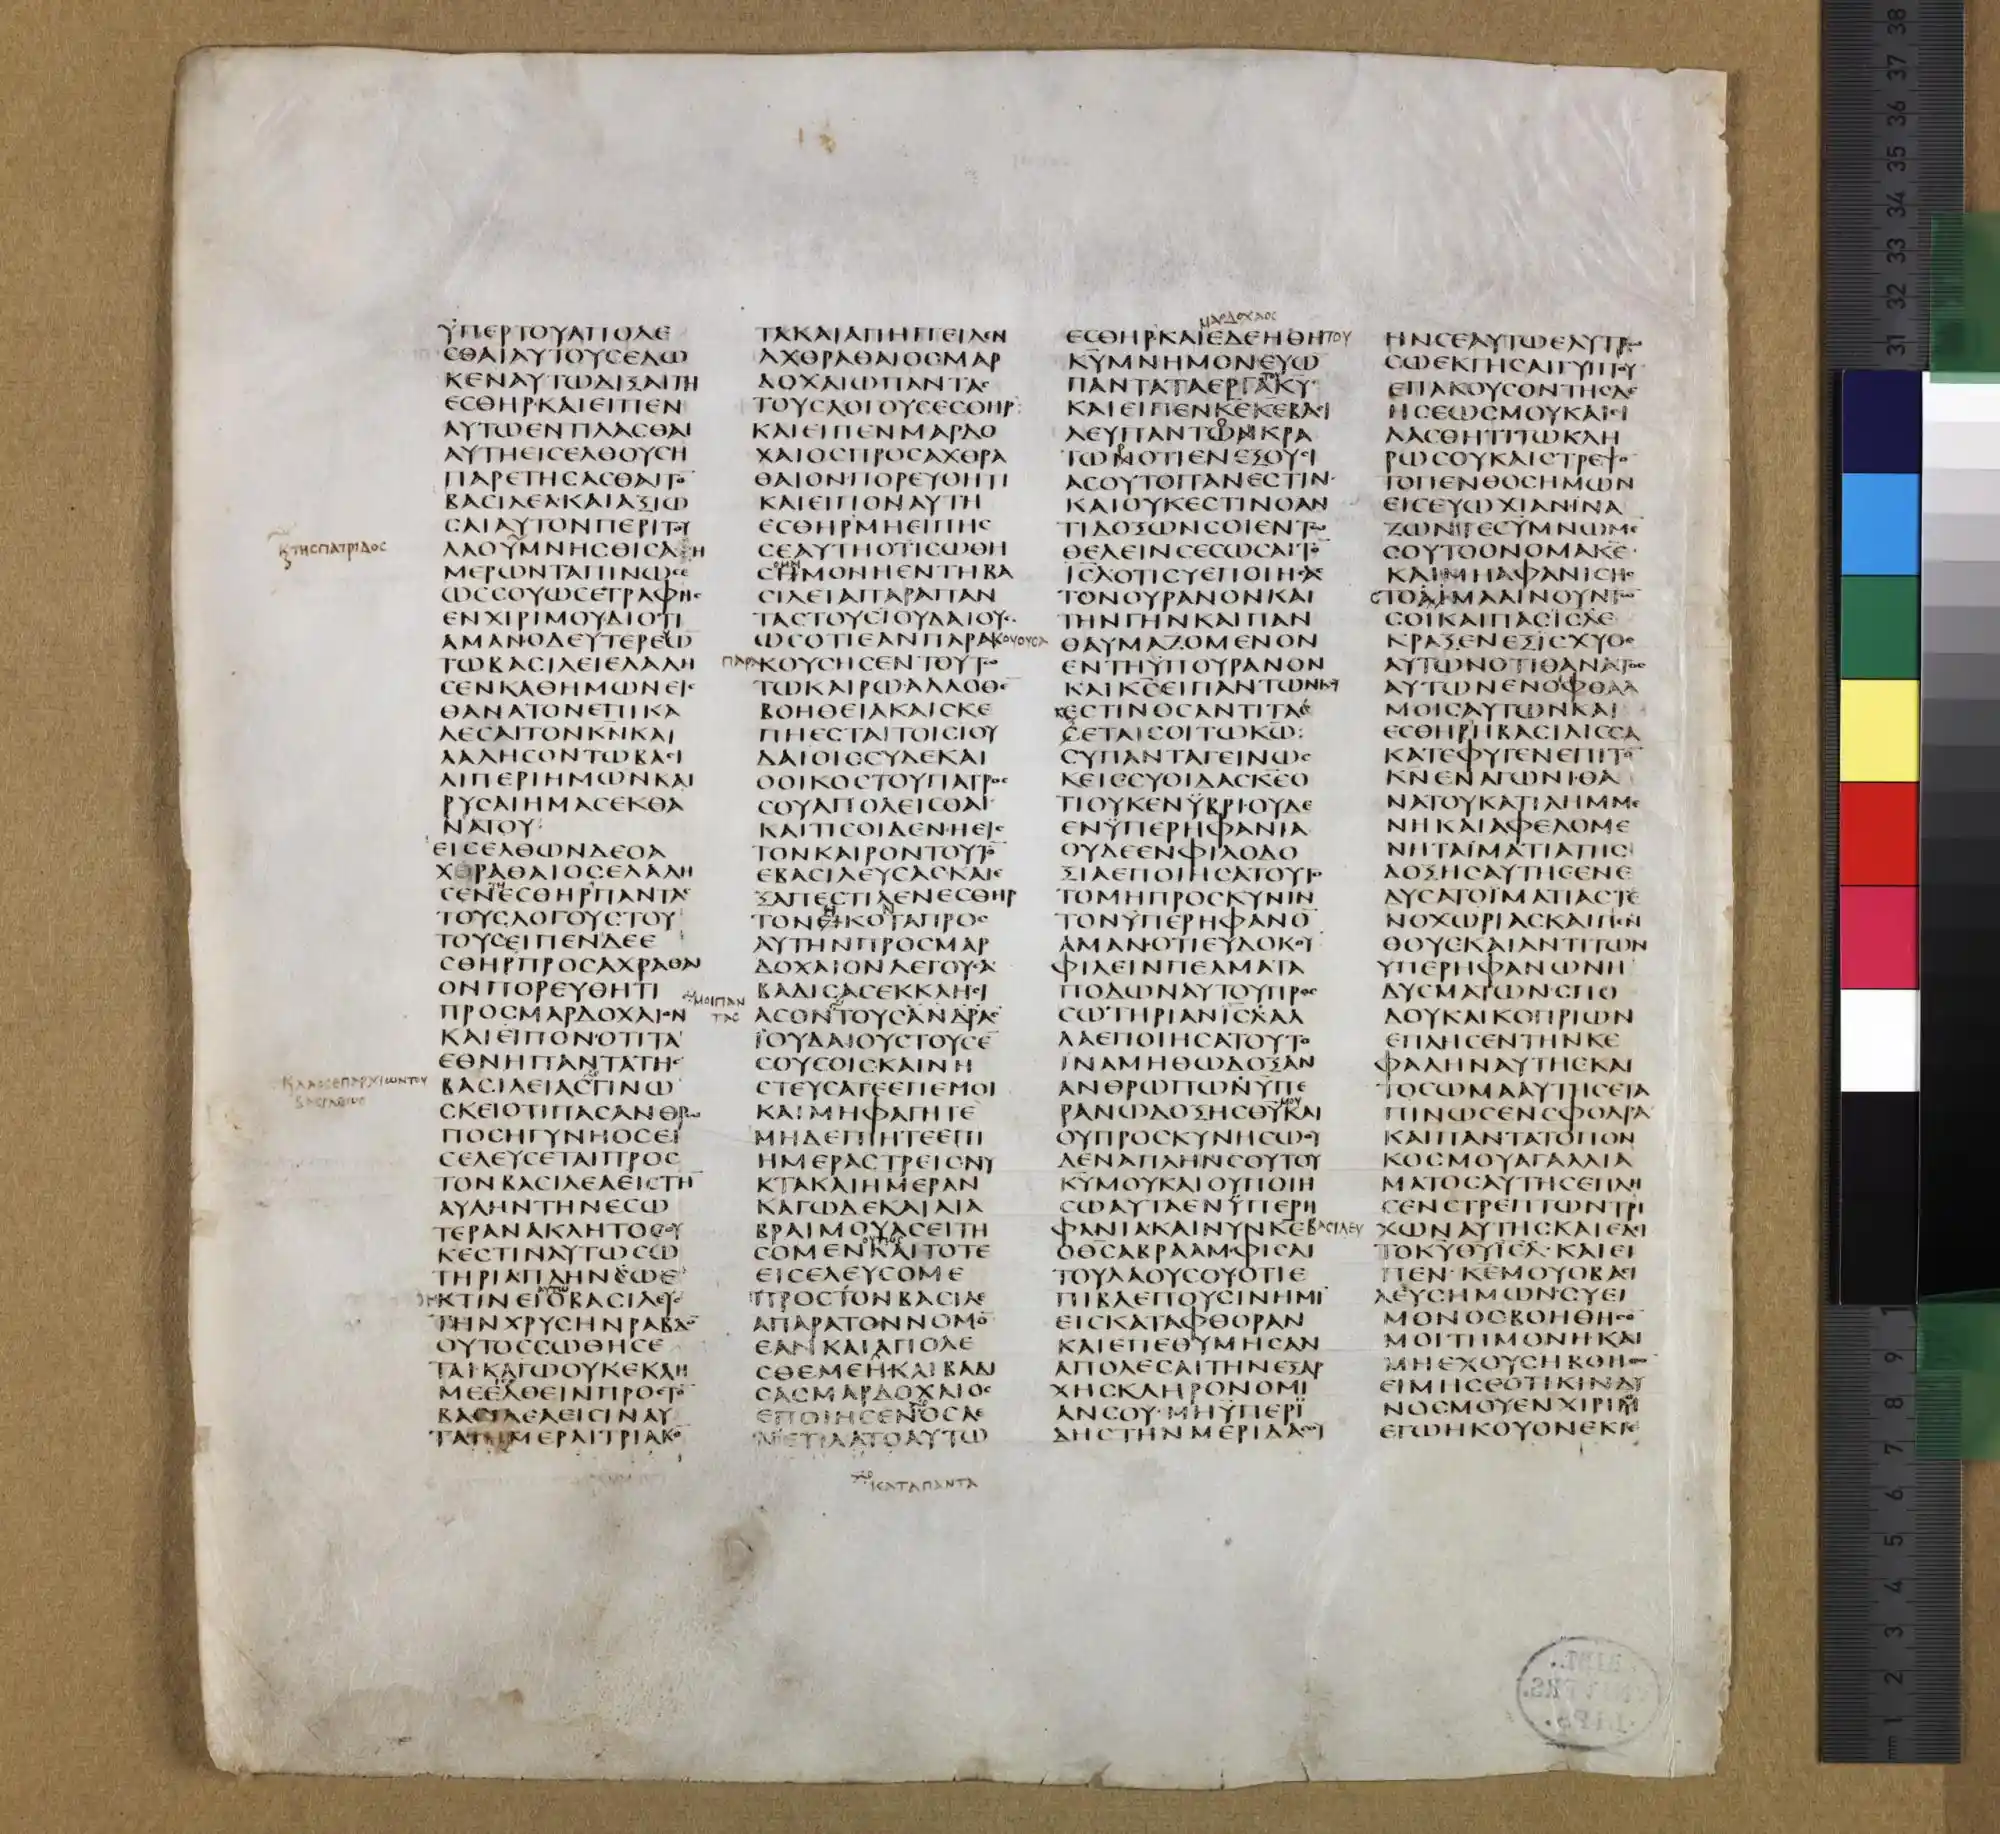 ΫΠΕΡΤΟΥΑΠΟΛΕ
ΣΘΑΙΑΥΤΟΥΣΕΔΩ
ΚΕΝΑΥΤΩΔΙΞΑΙΤΗ
ΕΣΘΗΡ·ΚΑΙΕΙΠΕΝ
ΑΥΤΩΕΝΤΙΛΑΣΘΑΙ
ΑΥΤΗΕΙΣΕΛΘΟΥΣΗ
ΠΑΡΕΤΗΣΑΣΘΑΙΤΟ̅
ΒΑΣΙΛΕΑ·ΚΑΙΑΞΙΩ
ΣΑΙΑΥΤΟΝΠΕΡΙΤΟΥ
ΛΑΟΥΜΝΗΣΘΙΣΑΗ
ΚΤΗΣΠΑΤΡΙΔΟΣ
ΜΕΡΩΝΤΑΠΙΝΩΣΕ
ΩΣΣΟΥΩΣΕΤΡΑΦΗΣ
ΕΝΧΙΡΙΜΟΥΔΙΟΤΙ
ΑΜΑΝΟΔΕΥΤΕΡΕΥΩ
ΤΩΒΑΣΙΛΕΙΕΛΑΛΗ
ΣΕΝΚΑΘΗΜΩΝΕΙΣ
ΘΑΝΑΤΟΝΕΠΙΚΑ
ΛΕΣΑΙΤΟΝΚ̅Ν̅ΚΑΙ
ΛΑΛΗΣΟΝΤΩΒΑΣΙ
ΛΙΠΕΡΙΗΜΩΝΚΑΙ
ΡΥΣΑΙΗΜΑΣΕΚΘΑ
ΝΑΤΟΥ:
ΕΙΣΕΛΘΩΝΔΕΟΑ
ΧΘΡΑΘΑΙΟΣΕΛΑΛΗ
ΣΕΝΤΗΕΣΘΗΡΠΑΝΤΑΣ
ΤΟΥΣΛΟΓΟΥΣΤΟΥ
ΤΟΥΣΕΙΠΕΝΔΕΕ
ΣΘΗΡΠΡΟΣΑΧΡΑΘΑΙ
ΟΝΠΟΡΕΥΘΗΤΙ
ΠΡΟΣΜΑΡΔΟΧΑΙΟΝ
ΚΑΙΕΙΠΟΝ·ΟΤΙΤΑ
ΕΘΝΗΠΑΝΤΑΤΗΣ
ΒΑΣΙΛΕΙΑΣΓΙΝΩ
ΣΚΕΙΟΤΙΠΑΣΑΝΘΡΩ
ΠΟΣΗΓΥΝΗΟΣΕΙ
ΣΕΛΕΥΣΕΤΑΙΠΡΟΣ
ΤΟΝΒΑΣΙΛΕΑΕΙΣΤΗ̅
ΑΥΛΗΝΤΗΝΕΣΩ
ΤΕΡΑΝΑΚΛΗΤΟΣΟΥ
ΚΕΣΤΙΝΑΥΤΩΣΩ
ΤΗΡΙΑΠΛΗΝΕΩΕ
ΚΤΙΝΕΙΟΒΑΣΙΛΕΥΣ
ΤΗΝΧΡΥΣΗΝΡΑΒΔΟ̅
ΟΥΤΟΣΣΩΘΗΣΕ
ΤΑΙ·ΚΑΓΩΟΥΚΕΚΛΗ
ΜΕΕΛΘΕΙΝΠΡΟΣΤΟ̅
ΒΑΣΙΛΕΑΕΙΣΙΝΑΥ
ΤΑΙΗΜΕΡΑΙΤΡΙΑΚΟ̅
ΤΑΚΑΙΑΠΗΓΓΕΙΛΕΝ
ΑΧΘΡΑΘΑΙΟΣΜΑΡ
ΔΟΧΑΙΩΠΑΝΤΑΣ
ΤΟΥΣΛΟΓΟΥΣΕΣΘΗΡ:
ΚΑΙΕΙΠΕΝΜΑΡΔΟ
ΧΑΙΟΣΠΡΟΣΑΧΘΡΑ
ΘΑΙΟΝ·ΠΟΡΕΥΘΗΤΙ
ΚΑΙΕΙΠΟΝΑΥΤΗ
ΕΣΘΗΡΜΗΕΙΠΗΣ
ΣΕΑΥΤΗΟΤΙΣΩΘΗ
ΣΗΜΟΝΗΕΝΤΗΒΑ
ΣΙΛΕΙΑΠΑΡΑΠΑΝ
ΤΑΣΤΟΥΣΙΟΥΔΑΙΟΥΣ
ΩΣΟΤΙΕΑΝΠΑΡΑ
ΚΟΥΣΗΣΕΝΤΟΥΤΩ
ΤΩΚΑΙΡΩΑΛΛΟΘΕ̅
ΒΟΗΘΕΙΑΚΑΙΣΚΕ
ΠΗΕΣΤΑΙΤΟΙΣΙΟΥ
ΔΑΙΟΙΣΣΥΔΕΚΑΙ
ΟΟΙΚΟΣΤΟΥΠΑΤΡΟΣ
ΣΟΥΑΠΟΛΕΙΣΘΑΙ
ΚΑΙΤΙΣΟΙΔΕΝ·ΗΕΙΣ
ΤΟΝΚΑΙΡΟΝΤΟΥΤΟ̅
ΕΒΑΣΙΛΕΥΣΑΣΚΑΙΕ
ΞΑΠΕΣΤΙΛΕΝΕΣΘΗΡ
ΤΟΝΕΙΚΟΤΑΠΡΟΣ
ΑΥΤΗΝΠΡΟΣΜΑΡ
ΔΟΧΑΙΟΝΛΕΓΟΥΣΑ
ΒΑΔΙΣΑΣΕΚΚΛΗΣΙ
ΑΣΟΝΤΟΥΣΑΝΔΡΑΣ
ΪΟΥΔΑΙΟΥΣΤΟΥΣΕ̅
ΣΟΥΣΟΙΣΚΑΙΝΗ
ΣΤΕΥΣΑΤΕΕΠΕΜΟΙ
ΚΑΙΜΗΦΑΓΗΤΕ
ΜΗΔΕΠΙΗΤΕΕΠΙ
ΗΜΕΡΑΣΤΡΕΙΣΝΥ
ΚΤΑΚΑΙΗΜΕΡΑΝ
ΚΑΓΩΔΕΚΑΙΑΙΑ
ΒΡΑΙΜΟΥΑΣΕΙΤΗ
ΣΟΜΕΝΚΑΙΤΟΤΕ
ΕΙΣΕΛΕΥΣΟΜΕ
ΠΡΟΣΤΟΝΒΑΣΙΛΕ
ΑΠΑΡΑΤΟΝΝΟΜΟ̅
ΕΑΝΚΑΙΑΠΟΛΕ
ΣΘΕΜΕΗ·ΚΑΙΒΑΔΙ
ΣΑΣΜΑΡΔΟΧΑΙΟΣ
ΕΠΟΙΗΣΕΝΟΣΑΕ
ΝΕΤΙΛΑΤΟΑΥΤΩ
ΚΑΤΑΠΑΝΤΑ
ΜΑΡΔΟΧΑΙΟΣ
ΕΣΘΗΡ·ΚΑΙΕΔΕΗΘΗΤΟΥ
Κ̅Υ̅ΜΝΗΜΟΝΕΥΩ̅
ΠΑΝΤΑΤΑΕΡΓΑΚ̅Υ̅
ΚΑΙΕΙΠΕΝΚ̅Ε̅Κ̅Ε̅ΒΑΣΙ
ΛΕΥΠΑΝΤΩΝΚΡΑ
ΤΩΝΟΤΙΕΝΕΞΟΥΣΙ
ΑΣΟΥΤΟΠΑΝΕΣΤΙΝ·
ΚΑΙΟΥΚΕΣΤΙΝΟΑΝ
ΤΙΔΟΞΩΝΣΟΙΕΝΤΩ
ΘΕΛΕΙΝΣΕΣΩΣΑΙΤΟ̅
Ι̅Σ̅Λ̅ΟΤΙΣΥΕΠΟΙΗΣΑΣ
ΤΟΝΟΥΡΑΝΟΝΚΑΙ
ΤΗΝΓΗΝΚΑΙΠΑΝ
ΘΑΥΜΑΖΟΜΕΝΟΝ
ΕΝΤΗΫΠΟΥΡΑΝΟΝ
ΚΑΙΚ̅Σ̅ΕΙΠΑΝΤΩΝΚΑΙ
ΕΣΤΙΝΟΣΑΝΤΙΤΑΞΕ
ΣΕΤΑΙΣΟΙΤΩΚ̅Ω̅:
ΣΥΠΑΝΤΑΓΕΙΝΩΣ
ΚΕΙΣΣΥΟΙΔΑΣΚ̅Ε̅Ο
ΤΙΟΥΚΕΝΫΒΡΙΟΥΔΕ
ΕΝΫΠΕΡΗΦΑΝΙΑ
ΟΥΔΕΕΝΦΙΛΟΔΟ
ΞΙΑΕΠΟΙΗΣΑΤΟΥΤΟ
ΤΟΜΗΠΡΟΣΚΥΝΙΝ
ΤΟΝΫΠΕΡΗΦΑΝΟ̅
ΑΜΑΝ·ΟΤΙΕΥΔΟΚΟΥ̅
ΦΙΛΕΙΝΠΕΛΜΑΤΑ
ΠΟΔΩΝΑΥΤΟΥΠΡΟΣ
ΣΩΤΗΡΙΑΝΙ̅Σ̅Λ̅ΑΛ
ΛΑΕΠΟΙΗΣΑΤΟΥΤΟ
ΙΝΑΜΗΘΩΔΟΞΑΝ
ΑΝΘΡΩΠΩΝΫΠΕ
ΡΑΝΩΔΟΞΗΣΘ̅Υ̅ΚΑΙ
ΟΥΠΡΟΣΚΥΝΗΣΩΟΥ
ΔΕΝΑΠΛΗΝΣΟΥΤΟΥ
Κ̅Υ̅ΜΟΥΚΑΙΟΥΠΟΙΗ
ΣΩΑΥΤΑΕΝΫΠΕΡΗ
ΦΑΝΙΑΚΑΙΝΥΝΚ̅Ε̅ΒΑΣΙΛΕΥ
ΟΘ̅Σ̅ΑΒΡΑΑΜ·ΦΙΣΑΙ
ΤΟΥΛΑΟΥΣΟΥ·ΟΤΙΕ
ΠΙΒΛΕΠΟΥΣΙΝΗΜΙ̅
ΕΙΣΚΑΤΑΦΘΟΡΑΝ
ΚΑΙΕΠΕΘΥΜΗΣΑΝ
ΑΠΟΛΕΣΑΙΤΗΝΕΞΑΡ
ΧΗΣΚΛΗΡΟΝΟΜΙ
ΑΝΣΟΥ·ΜΗΫΠΕΡΙ
ΔΗΣΤΗΝΜΕΡΙΔΑΣΟΥ
ΗΝΣΕΑΥΤΩΕΛΥΤΡΩ
ΣΩΕΚΓΗΣΑΙΓΥΠΤΟΥ
ΕΠΑΚΟΥΣΟΝΤΗΣΔΕ
ΗΣΕΩΣΜΟΥΚΑΙΕΙ
ΛΑΣΘΗΤΙΤΩΚΛΗ
ΡΩΣΟΥΚΑΙΣΤΡΕΨΟ̅
ΤΟΠΕΝΘΟΣΗΜΩΝ
ΕΙΣΕΥΩΧΙΑΝΙΝΑ
ΖΩΝΤΕΣΫΜΝΩΜΕ̅
ΣΟΥΤΟΟΝΟΜΑΚ̅Ε̅·
ΚΑΙΜΗΑΦΑΝΙΣΗΣ
ΣΤΟΜΑΑΙΝΟΥΝΤΩ̅
ΣΟΙΚΑΙΠΑΣΙ̅Σ̅Λ̅Ε
ΚΡΑΞΕΝΕΞΙΣΧΥΟΣ
ΑΥΤΩΝΟΤΙΘΑΝΑΤΟΣ
ΑΥΤΩΝΕΝΟΦΘΑΛ
ΜΟΙΣΑΥΤΩΝΚΑΙ
ΕΣΘΗΡΗΒΑΣΙΛΙΣΣΑ
ΚΑΤΕΦΥΓΕΝΕΠΙΤΟ̅
Κ̅Ν̅ΕΝΑΓΩΝΙΘΑ
ΝΑΤΟΥΚΑΤΙΛΗΜΜΕ
ΝΗΚΑΙΑΦΕΛΟΜΕ
ΝΗΤΑΪΜΑΤΙΑΤΗΣ
ΔΟΞΗΣΑΥΤΗΣΕΝΕ
ΔΥΣΑΤΟΪΜΑΤΙΑΣΤΕ
ΝΟΧΩΡΙΑΣΚΑΙΠΕΝ
ΘΟΥΣΚΑΙΑΝΤΙΤΩΝ
ΥΠΕΡΗΦΑΝΩΝΗ
ΔΥΣΜΑΤΩΝ·ΣΠΟ
ΔΟΥΚΑΙΚΟΠΡΙΩΝ
ΕΠΛΗΣΕΝΤΗΝΚΕ
ΦΑΛΗΝΑΥΤΗΣΚΑΙ
ΤΟΣΩΜΑΑΥΤΗΣΕΤΑ
ΠΙΝΩΣΕΝΣΦΟΔΡΑ
ΚΑΙΠΑΝΤΑΤΟΠΟΝ
ΚΟΣΜΟΥΑΓΑΛΛΙΑ
ΜΑΤΟΣΑΥΤΗΣΕΠΛΗ
ΣΕΝΣΤΡΕΠΤΩΝΤΡΙ
ΧΩΝΑΥΤΗΣΚΑΙΕΔΕΙ
ΤΟΚ̅Υ̅Θ̅Υ̅Ι̅Σ̅Λ̅·ΚΑΙΕΙ
ΠΕΝ·Κ̅Ε̅ΜΟΥΟΒΑΣΙ
ΛΕΥΣΗΜΩΝ·ΣΥΕΙ
ΜΟΝΟΣΒΟΗΘΗΣΟ̅
ΜΟΙΤΗΜΟΝΗ·ΚΑΙ
ΜΗΕΧΟΥΣΗΒΘΗ
ΕΙΜΗΣΕΟΤΙΚΙΝΔΥ
ΝΟΣΜΟΥΕΝΧΙΡΙΜ
ΕΓΩΗΚΟΥΟΝΕΚΓΕ